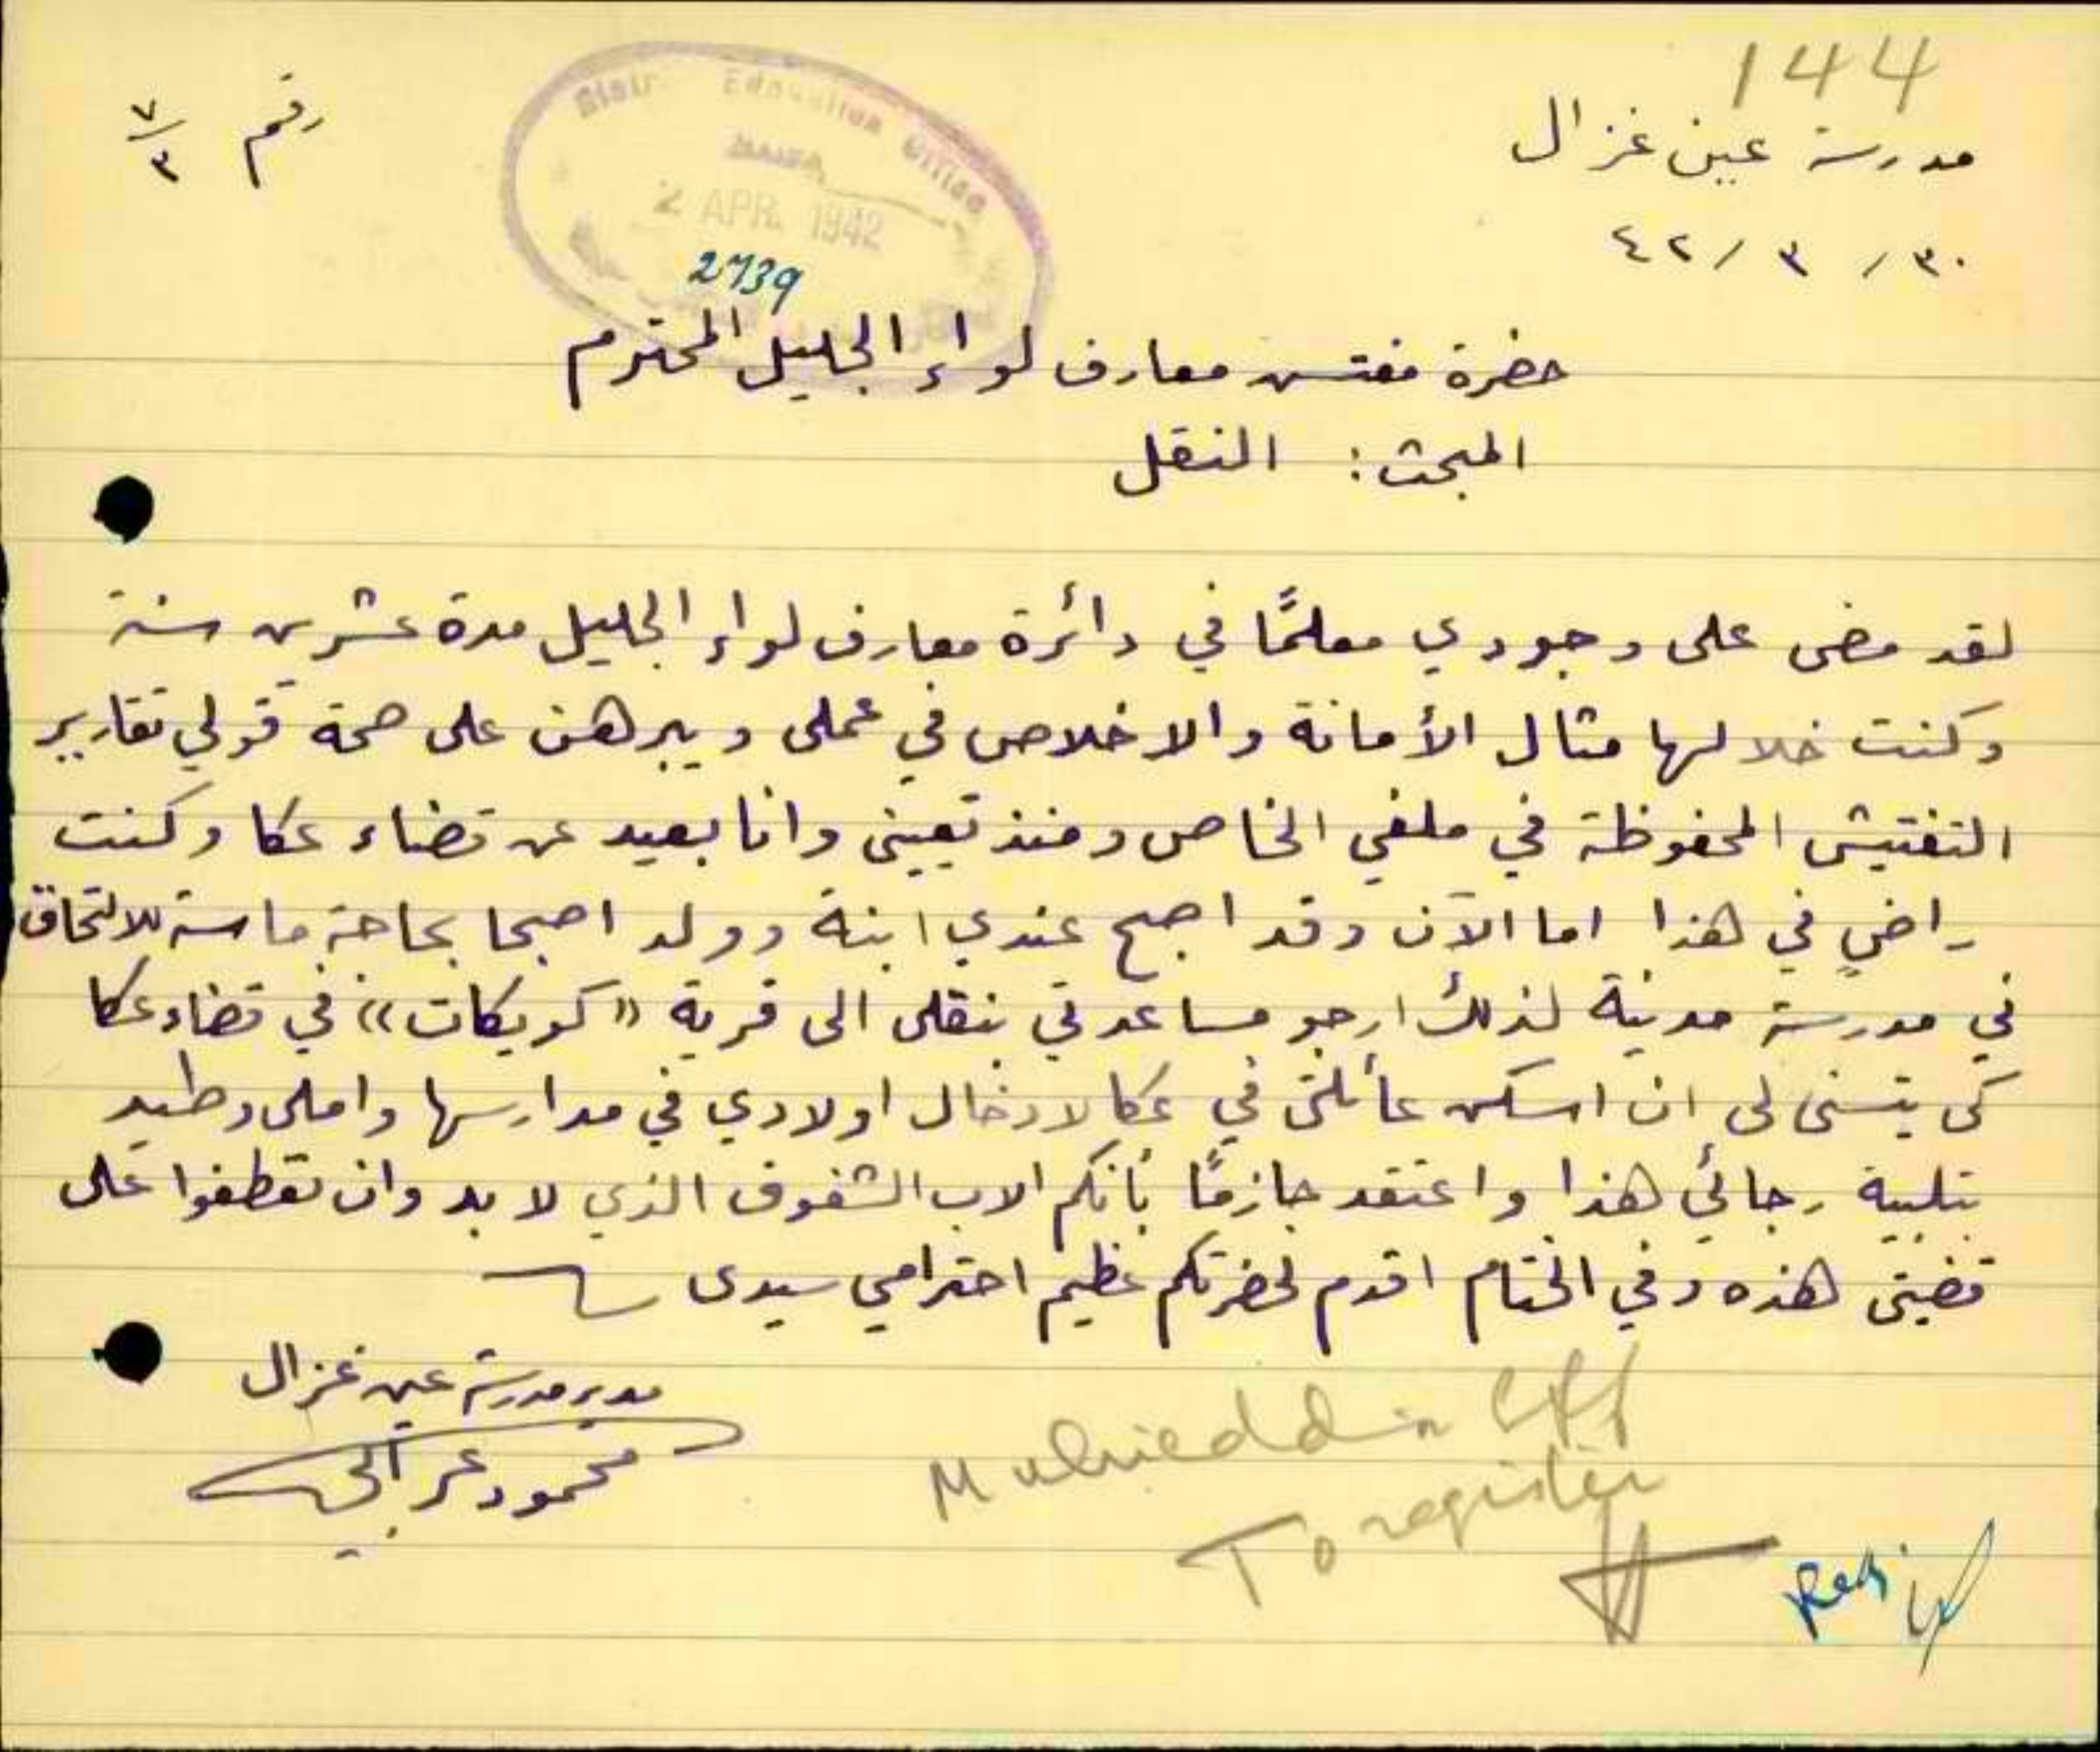 144
مدرسة عين غزال
رقم ٧/٣
٣٠/ ٣ /٤٢
Distr. Education Office
HAIFA
2 APR. 1942
2739
حضرة مفتش معارف لواء الجليل المحترم
المبحث: النقل
لقد مضى على وجودي معلمًا في دائرة معارف لواء الجليل مدة عشرين سنة
وكنت خلالها مثال الأمانة والاخلاص في عملي ويبرهن على صحة قولي تقارير
التفتيش المحفوظة في ملفي الخاص ومنذ تعييني وانا بعيد عن قضاء عكا وكنت
راضيٍ في هذا اما الآن وقد اصبح عندي ابنة وولد اصبحا بحاجة ماسة للالتحاق
في مدرسة مدنية لذلك ارجو مساعدتي بنقلي الى قرية "كويكات" في قضاء عكا
كي يتسنى لي ان اسكن عائلتي في عكا لادخال اولادي في مدارسها واملي وطيد
بتلبية رجائي هذا واعتقد جازمًا بأنكم الاب الشفوق الذي لا بد وان تعطفوا على
قضيتي هذه وفي الختام اقدم لحضرتكم عظيم احترامي سيدي
مدير مدرسة عين غزال
محمود عرابي
Muhieddin Eff
To register